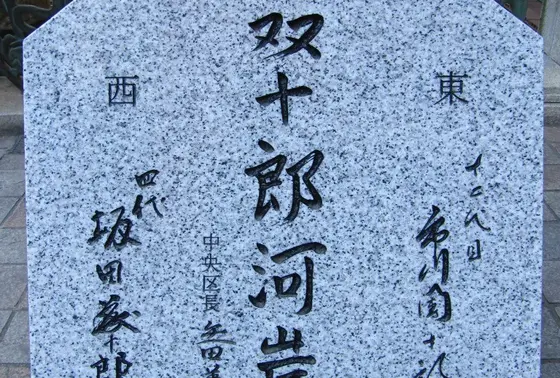 東
十二代目
市川團十郎
双十郎河岸
中央区長 矢田美
西
四代
坂田藤十郎